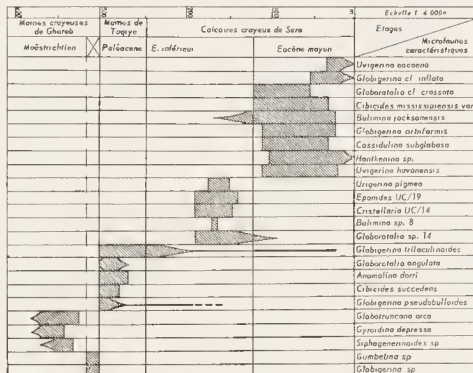 Echelle 1 4 000e
Marnes crayeuses de Ghareb
Marnes de Taqiye
Calcaires crayeux de Sara
Etages
Microfaunes caractéristiques
Maëstrichtien
Paléocene
E. inférieur
Eocène moyen
Uvigerina eocaena
Globigerina cf inflata
Globorotalia cf crassata
Cibicides mississipiensis var
Bulimina jacksonensis
Globigerina orbiformis
Cassidulina subglobosa
Hantkenina sp.
Uvigerina havanensis
Uvigerina pigmea
Eponides UC/19
Cristellaria UC/14
Bulimina sp. 8
Globorotalia sp. 14
Globigerina triloculinoides
Globorotalia angulata
Anomalina dorri
Cibicides succedens
Globigerina pseudobulloides
Globotruncana arca
Gyroidina depressa
Siphogenerinoides sp
Gumbelina sp
Globigerina sp